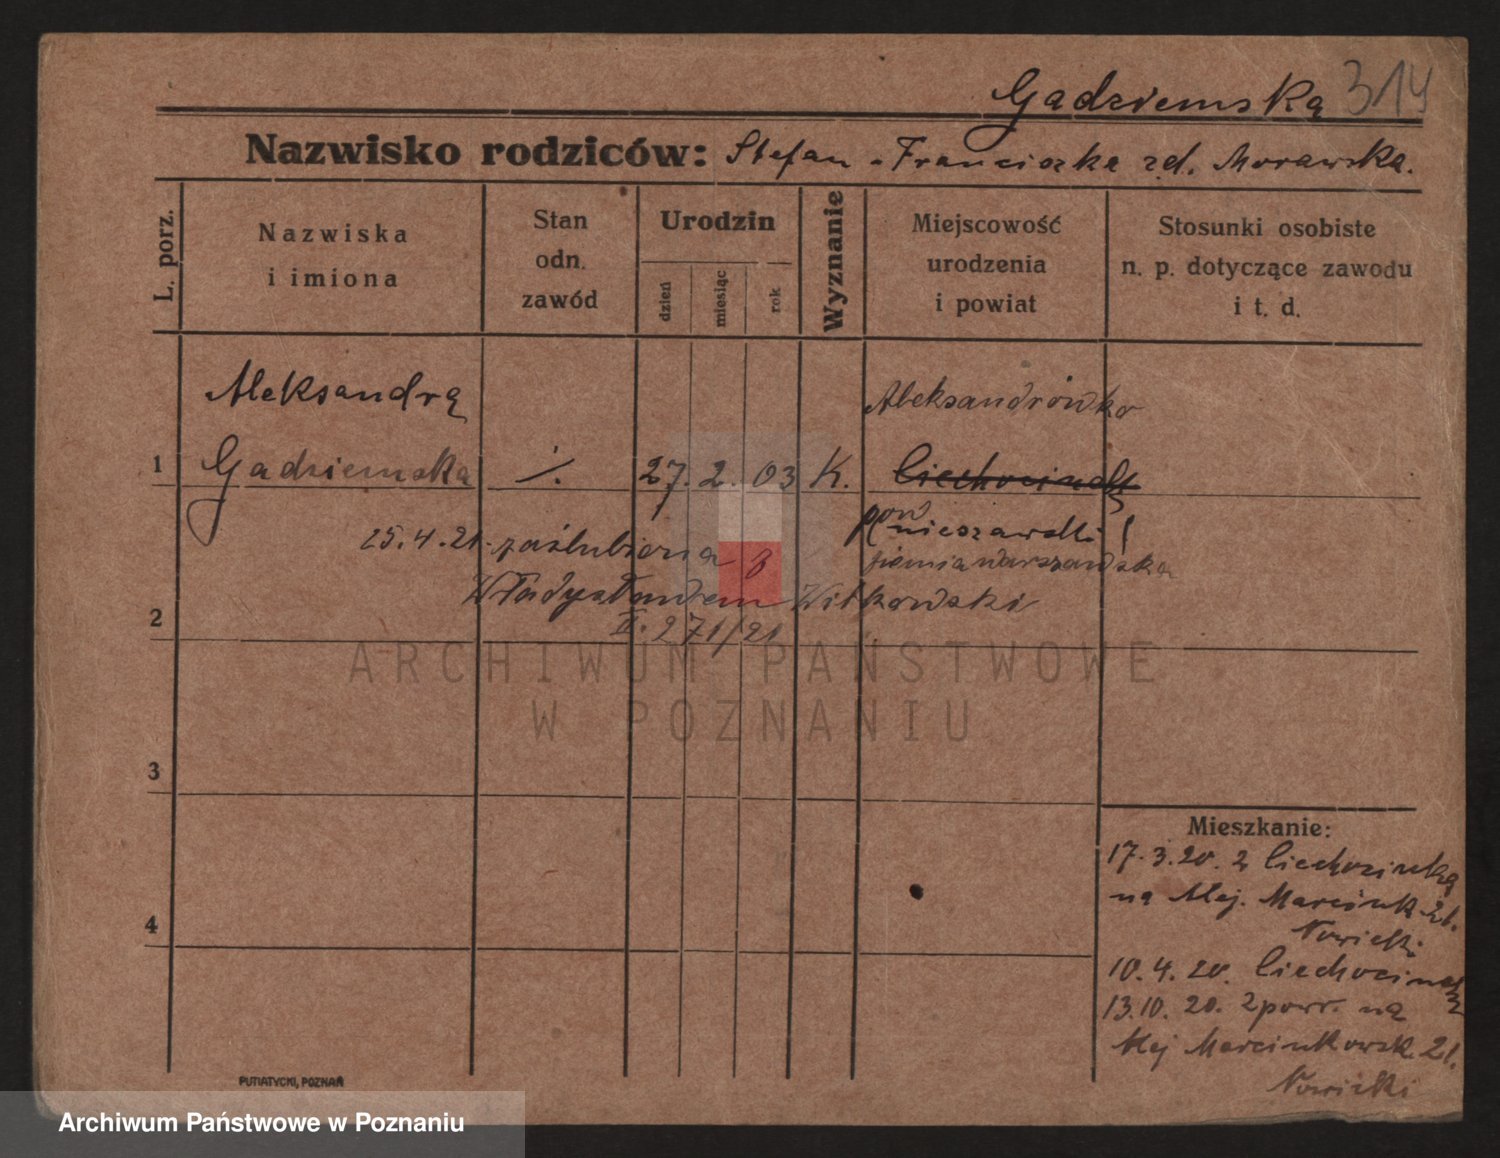 Gadziemska 314
Nazwisko rodziców: Stefan - Franciszka zd. Morawska.
L. porz.
Nazwiska
i imiona
Stan
odn.
zawód
Urodzin
dzień
miesiąc
rok
Wyznanie
Miejscowość
urodzenia
i powiat
Stosunki osobiste
n. p. dotyczące zawodu
i t. d.
Aleksandra
Aleksandrówko
1 Gadziemska ./. 27. 2. 03 K. Ciechocinek
pow
nieszawski
25.4.21. zaślubiona z
ziemia warszawska
Władysławem Witkowski
2
II. 271/21
ARCHIWUM PAŃSTWOWE
W POZNANIU
3
4
Mieszkanie:
17.3.20. z Ciechocinka
na Alej. Marcink. 21.
Nowicki
10.4.20. Ciechocinek
13.10.20. z powr. na
Alej Marcinkowsk. 21.
Nowicki
PUTIATYCKI, POZNAŃ
Archiwum Państwowe w Poznaniu